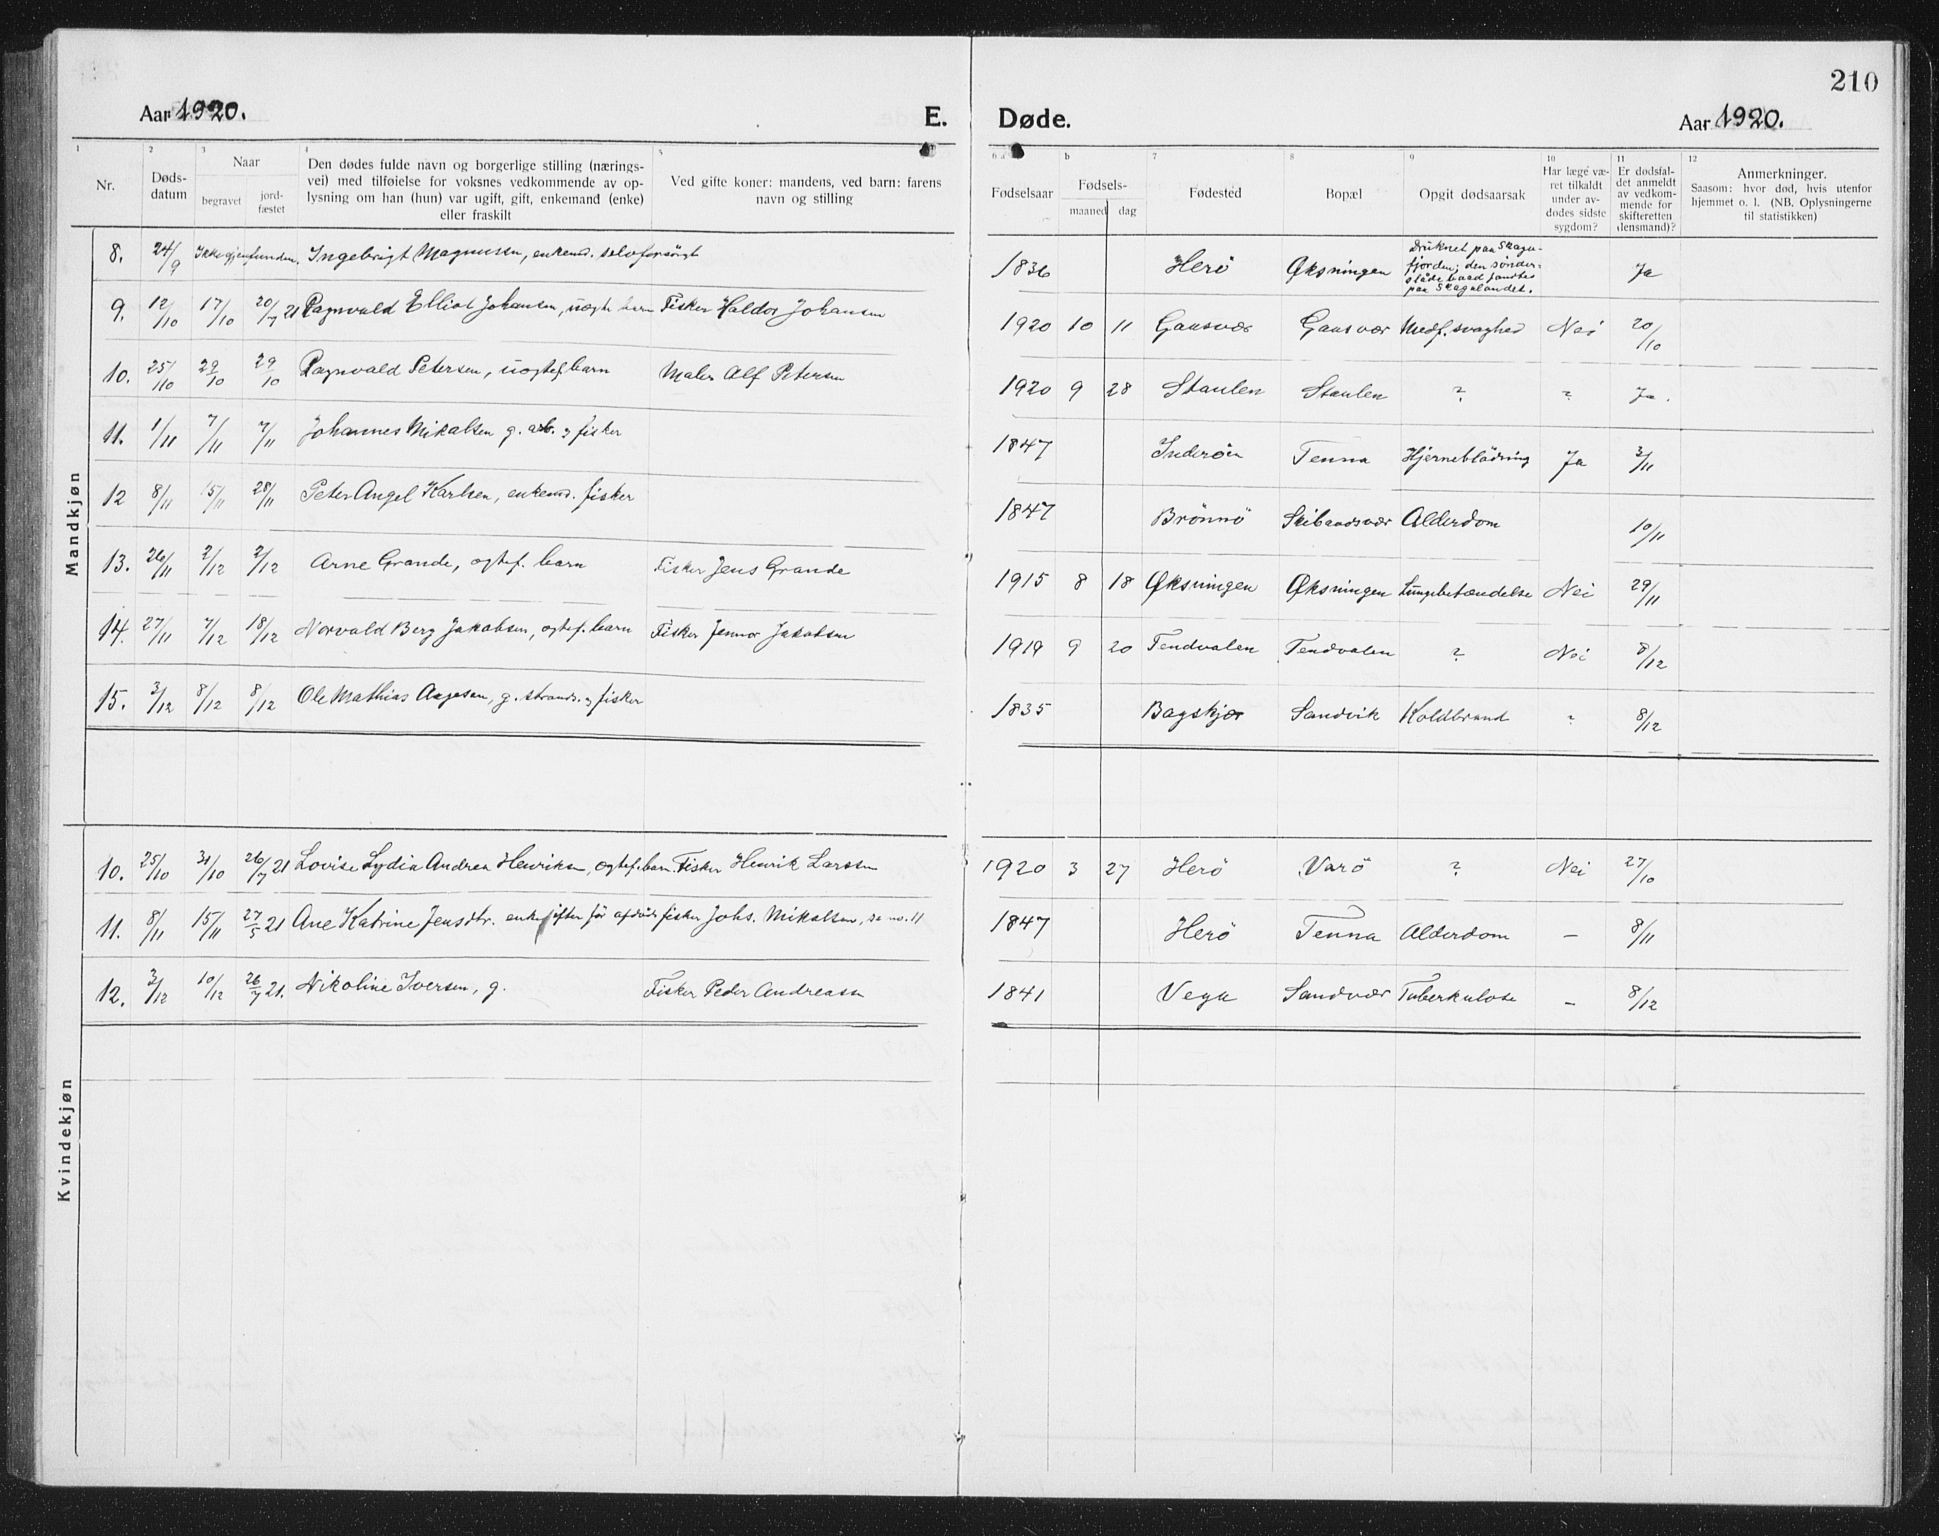 210
Aar 1920. E. Døde. Aar 1920.
1 2 3 4 5 6 a b 7 8 9 10 11 12
Nr.
Døds-
datum
Naar
begravet
jord-
fæstet
Den dødes fulde navn og borgerlige stilling (nærings-
vei) med tilføielse for voksnes vedkommende av op-
lysning om han (hun) var ugift, gift, enkemand (enke)
eller fraskilt
Ved gifte koner: mandens, ved barn: farens
navn og stilling
Fødselsaar
Fødsels-
maaned dag
Fødested
Bopæl
Opgit dødsaarsak
Har læge væ-
ret tilkaldt
under av-
dødes sidste
sygdom?
Er dødsfal-
det anmeldt
av vedkom-
mende for
skifteretten
(lensmand)?
Anmerkninger.
Saasom: hvor død, hvis utenfor
hjemmet o. l. (NB. Oplysningerne
til statistikken)
Mandkjøn
8. 24/9 Ikke gjenfunden. Ingebrigt Magnussen, enkemd. selvforsørgt 1836 Herö Øksningen Druknet paa Skagafjorden; den sönderslåde baad fandtes paa Skagalandet. Ja
9. 12/10 17/10 20/7 21 Ragnvald Elliot Johansen, uægte barn Fisker Haldor Johansen 1920 10 11 Gaasvær Gaasvær Medf. svaghed Nei 20/10
10. 25/10 29/10 29/10 Ragnvald Petersen, uægtef. barn Maler Alf Petersen 1920 9 28 Staulen Staulen ? ? Ja.
11. 1/11 7/11 7/11 Johannes Mikalsen g. arb. og fisker 1847 Inderöen Tenna Hjerneblödning Ja 3/11
12 8/11 15/11 28/11 Peter Angel Karlsen, enkemd. fisker 1847 Brönnö Skibaadsvær Alderdom 10/11
13. 26/11 2/12 2/12 Arne Grande, ægtef. barn Fisker Jens Grande 1915 8 18 Øksningen Øksningen Lungebetændelse Nei 29/11
14. 27/11 7/12 18/12 Norvald Berg Jakobsen, ægtef. barn Fisker Jennor Jakobsen 1919 9 20 Tendvalen Tendvalen ? Nei 8/12
15. 3/12 8/12 8/12 Ole Mathias Aagesen, g. strands. og fisker 1835 Bagskjær Sandvik Koldbrand ? 8/12
Kvindekjøn
10. 25/10 31/10 26/7 21 Lovise Lydia Andrea Henriksen, ægtef. barn. Fisker Henrik Larssen 1920 3 27 Herö Varö ? Nei 27/10
11. 8/11 15/11 27/5 21 Ane Katrine Jensdtr. enke efter før afdöde fisker Johs. Mikalsen, se no. 11 1847 Herö Tenna Alderdom – 8/11
12. 3/12 10/12 26/7 21. Nikoline Iversen, g. Fisker Peder Andreasen 1841 Vega Sandvær Tuberkulose – 8/12